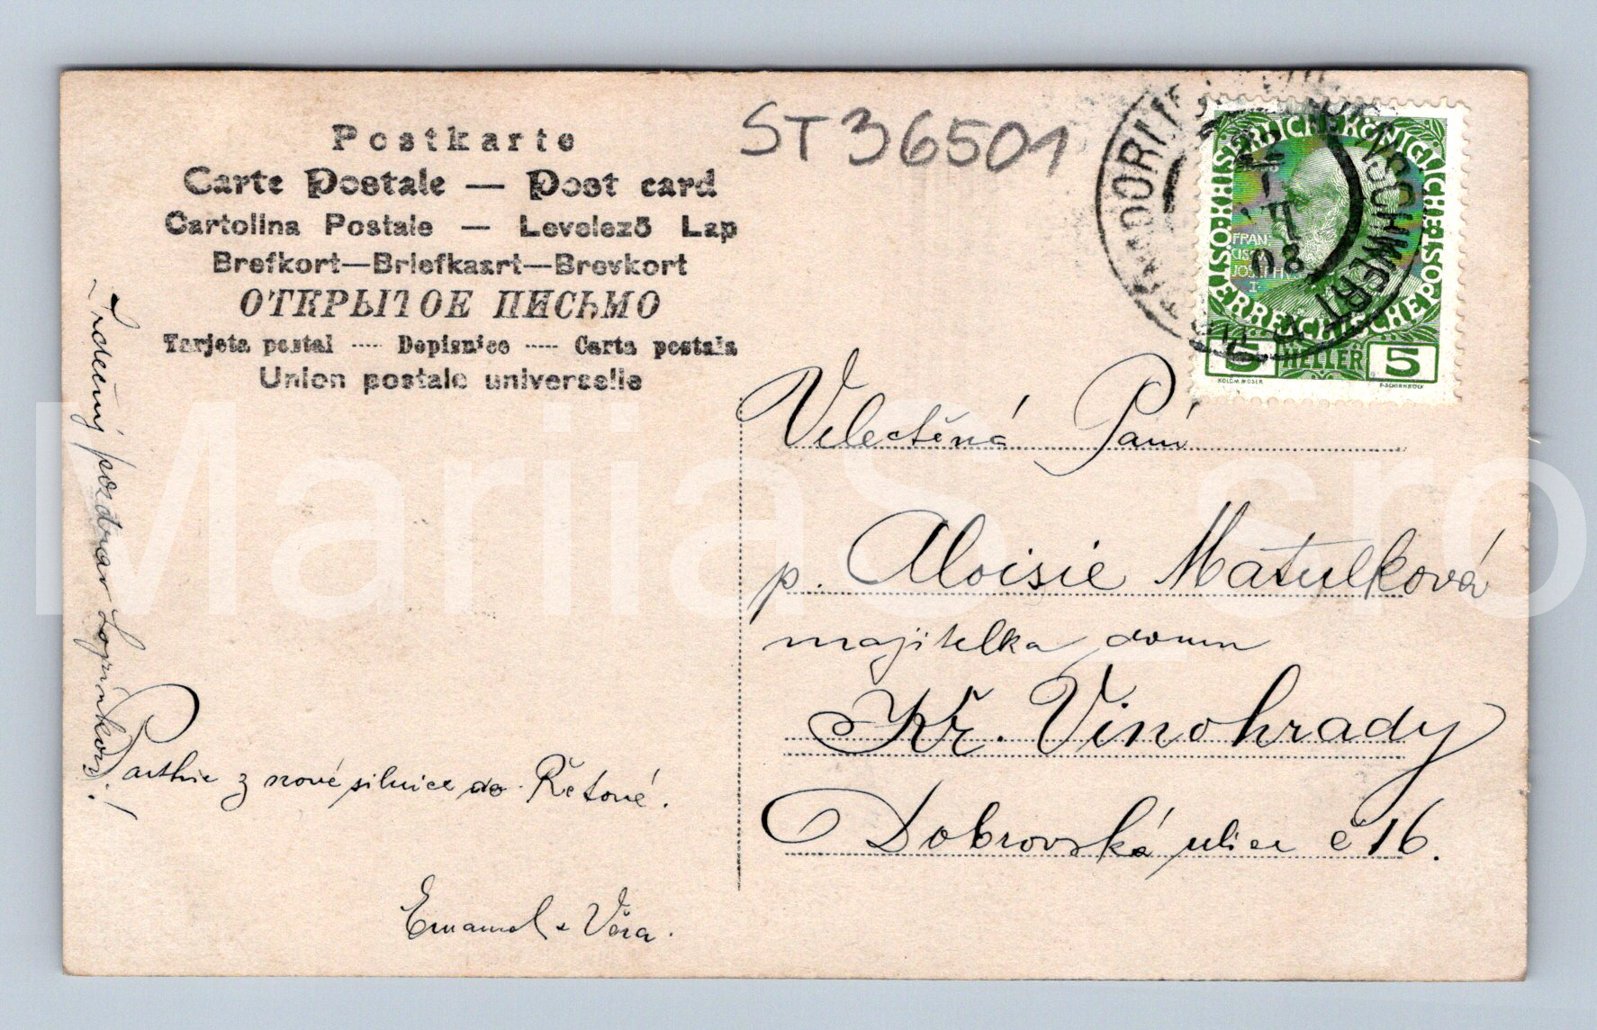 Postkarte
Carte Postale — Post card
Cartolina Postale — Levelező Lap
Brefkort—Briefkaart—Brevkort
ОТКРЫТОЕ ПИСЬМО
Tarjeta postal ---- Dopisnice ---- Carta postala
Union postale universelle
ST36501
KAISERLICHE KÖNIGLICHE
ÖSTERREICHISCHE POST
FRAN
CISC
JOSEPH
I
5 HELLER 5
08
Velectěná Paní
p. Aloisie Matulková
majitelka domu
Kr. Vinohrady
Dobrovská ulice č 16.
Srdečný pozdrav
Parthie z nové silnice do Řetové.
Emanuel a Věra.
MariiaS_sro